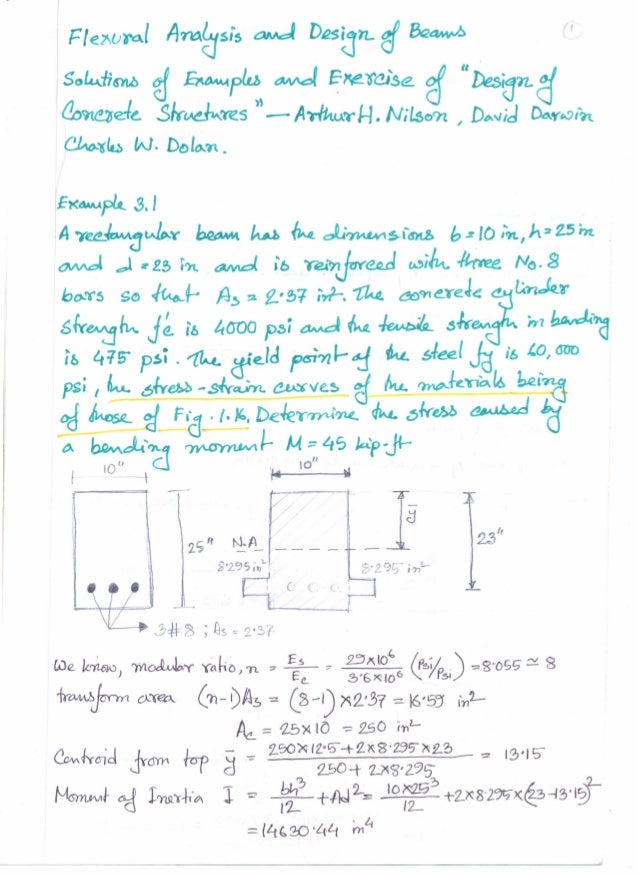 Flexural Analysis and Design of Beams
1
Solutions of Examples and Exercise of "Design of
Concrete Structures" — Arthur H. Nilson, David Darwin
Charles W. Dolan.
Example 3.1
A rectangular beam has the dimensions b=10 in, h=25 in
and d=23 in and is reinforced with three No. 8
bars so that As = 2.37 in². The concrete cylinder
strength f'c is 4000 psi and the tensile strength in bending
is 475 psi. The yield point of the steel fy is 60,000
psi, the stress-strain curves of the materials being
of those of Fig. 1.16. Determine the stress caused by
a bending moment M = 45 kip-ft
10" 10"
25" N.A ȳ 23"
8.295 in² 8.295 in²
3#8 ; As = 2.37
We know, modular ratio, n = Es/Ec = 29×10⁶/3.6×10⁶ (Psi/Psi) = 8.055 ≃ 8
transform area (n-1)As = (8-1)×2.37 = 16.59 in²
Ac = 25×10 = 250 in²
Centroid from top ȳ = (250×12.5+2×8.295×23)/(250+2×8.295) = 13.15
Moment of Inertia I = bh³/12 + Ad² = 10×25³/12 + 2×8.295×(23-13.15)²
= 14630.44 in⁴